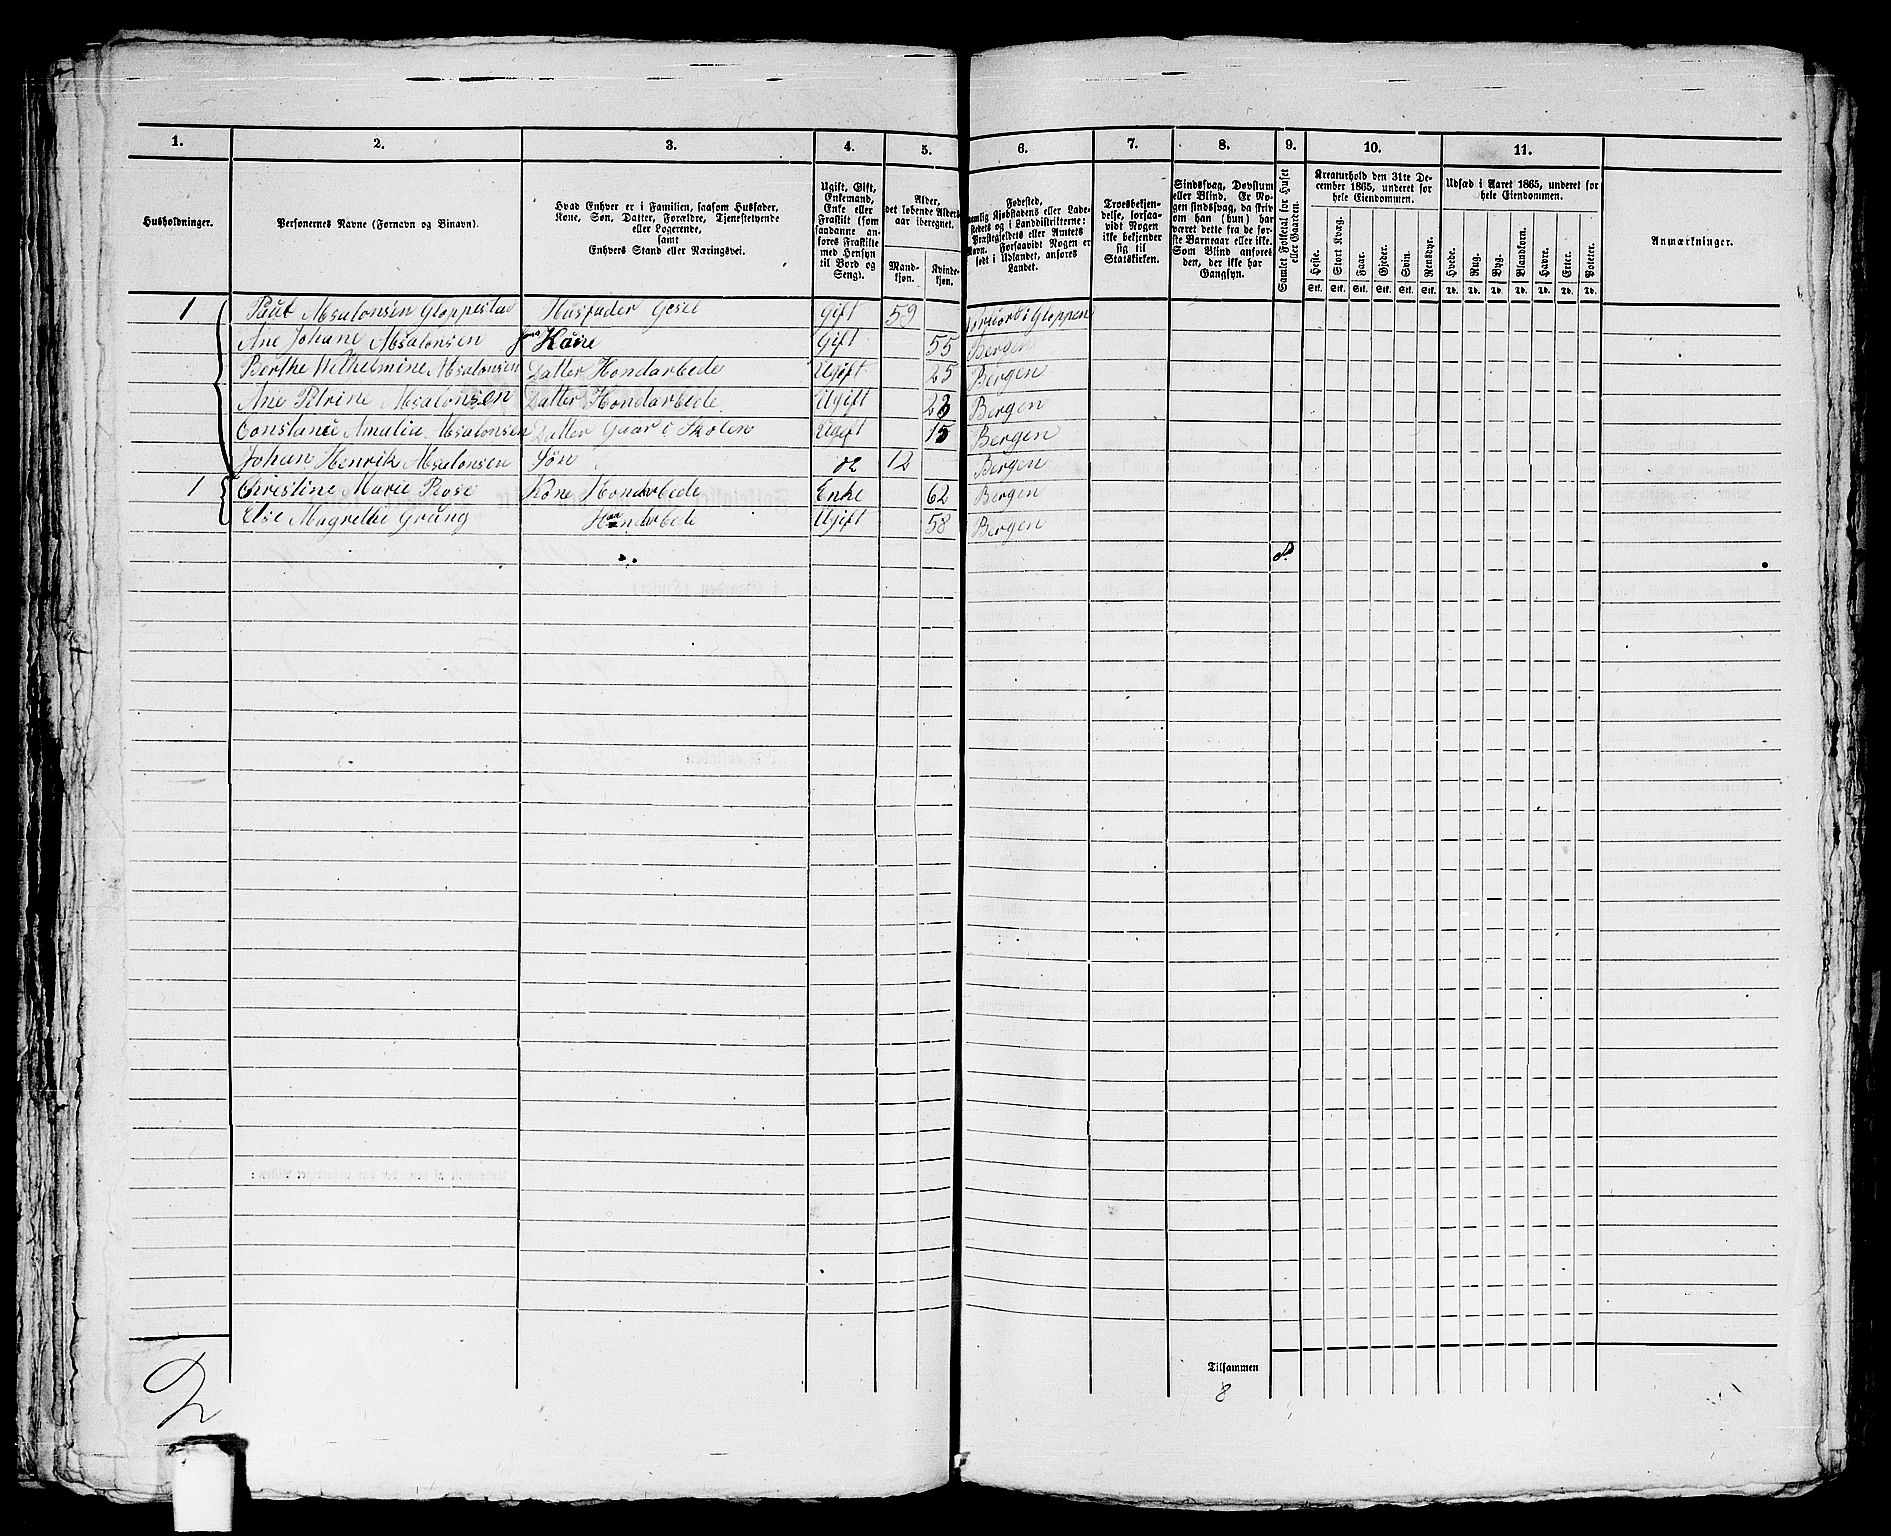 1. 2. 3. 4. 5. 6. 7. 8. 9. 10. 11.
Husholdninger.
Personernes Navne (Fornavn og Binavn).
Hvad Enhver er i Familien, saasom Husfader,
Kone, Søn, Datter, Forældre, Tjenestetyende
eller Logerende,
samt
Enhvers Stand eller Næringsvei.
Ugift, Gift,
Enkemand,
Enke eller
Fraskilt (som
saadanne an-
føres Fraskilte
med Hensyn
til Bord og
Seng).
Alder,
det løbende Alders-
aar iberegnet.
Mand-
kjøn.
Kvinde-
kjøn.
Fødested,
nemlig Kjøbstadens eller Lade-
stedets og i Landdistrikterne:
Præstegjeldets eller Amtets
Navn. Forsaavidt Nogen er
født i Udlandet, anføres
Landet.
Troesbekjen-
delse, forsaa-
vidt Nogen
ikke bekjender
sig til
Statskirken.
Sindssvag, Døvstum
eller Blind. Er No-
gen sindssvag, da skriv
om han (hun) har
været dette fra de før-
ste Barneaar eller ikke.
Som Blind anføres
den, der ikke har
Gangsyn.
Samlet Folketal for Huset
eller Gaarden.
Kreaturhold den 31te De-
cember 1865, underet for
hele Eiendommen.
Heste. Stort Kvæg. Faar. Gjeder. Svin. Rensdyr.
Stk. Stk. Stk. Stk. Stk. Stk.
Udsæd i Aaret 1865, underet for
hele Eiendommen.
Hvede. Rug. Byg. Blandkorn. Havre. Erter. Poteter.
Td. Td. Td. Td. Td. Td. Td.
Anmærkninger.
1 Paul Absalonsen Gloppestad Husfader Gesel Gift 59 i Gloppen
Ane Johane Absalonsen Kone Gift 55 Bergen
Berthe Wilhelmine Absalonsen Datter Hondarbede Ugift 25 Bergen
Ane Petrine Absalonsen Datter Hondarbede Ugift 23 Bergen
Constance Amalie Absalonsen Datter Gaar i Skolen Ugift 15 Bergen
Johan Henrik Absalonsen Søn 12 Bergen
1 Christine Marie Rose Kone Hondarbede Enke 62 Bergen
Else Magrethe Grung Haandarbede Ugift 58 Bergen
Tilsammen
8